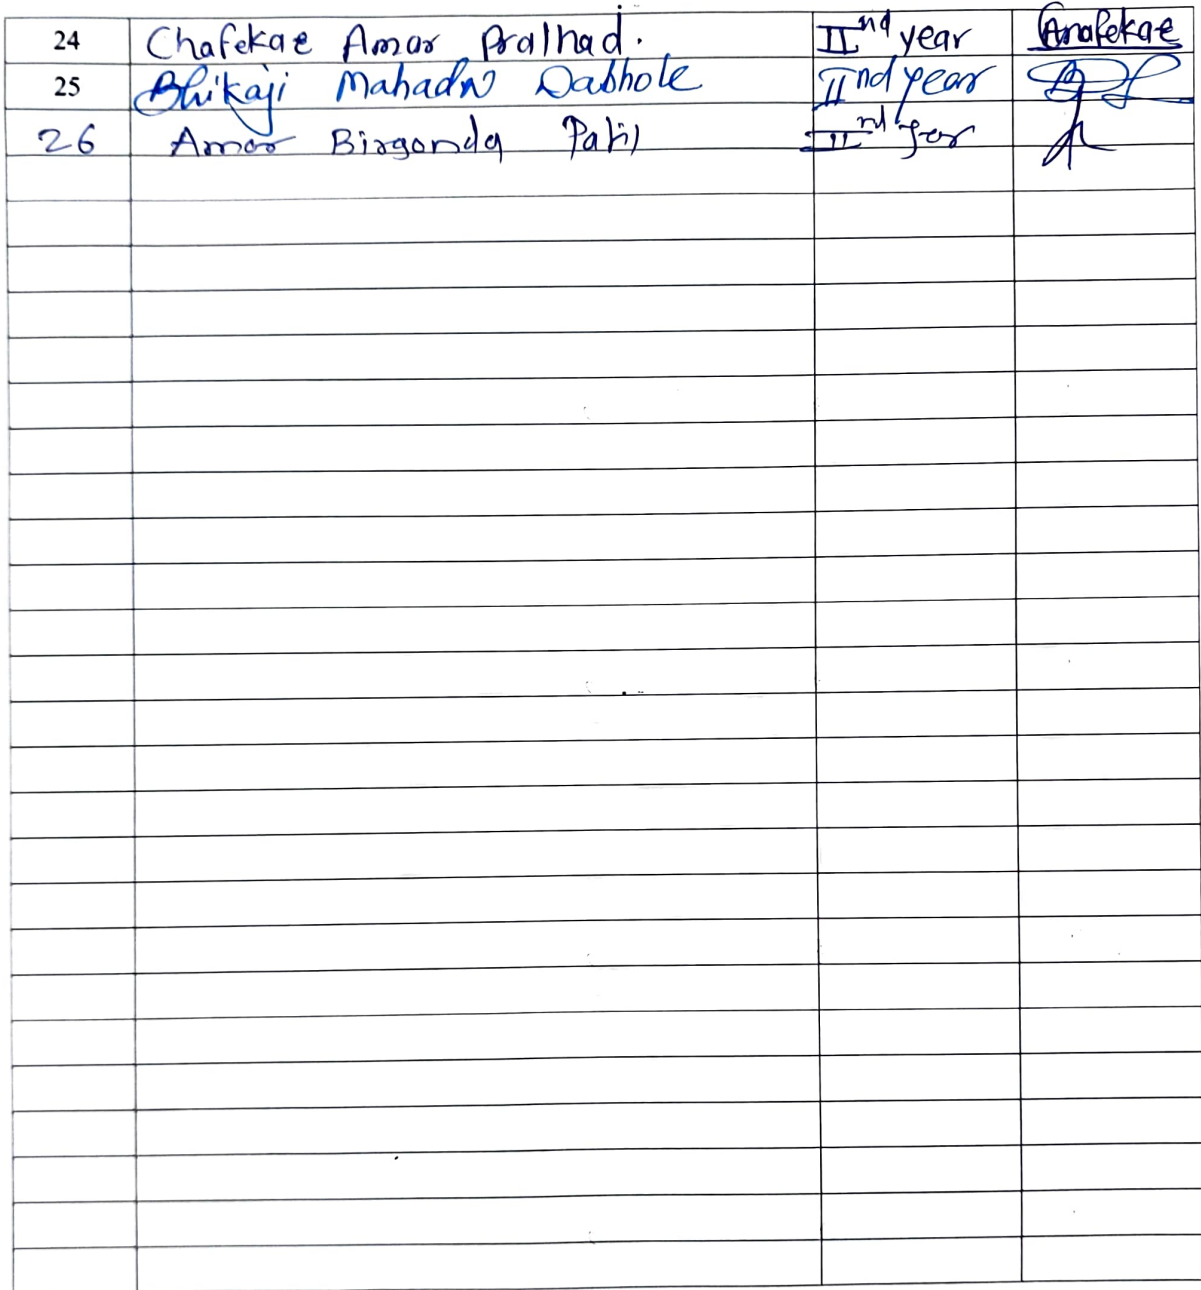 24 Chafekar Amar Pralhad. IInd year Chafekar
25 Bhikaji Mahadev Dabhole IInd year
26 Amar Birgonda Patil IInd year